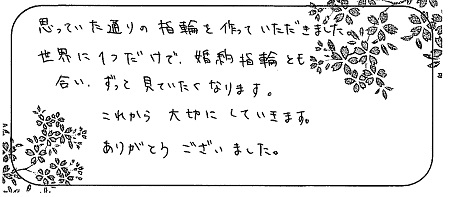 思っていた通りの指輪を作っていただきました。
世界に1つだけで、婚約指輪とも
合い、ずっと見ていたくなります。
これから大切にしていきます。
ありがとうございました。